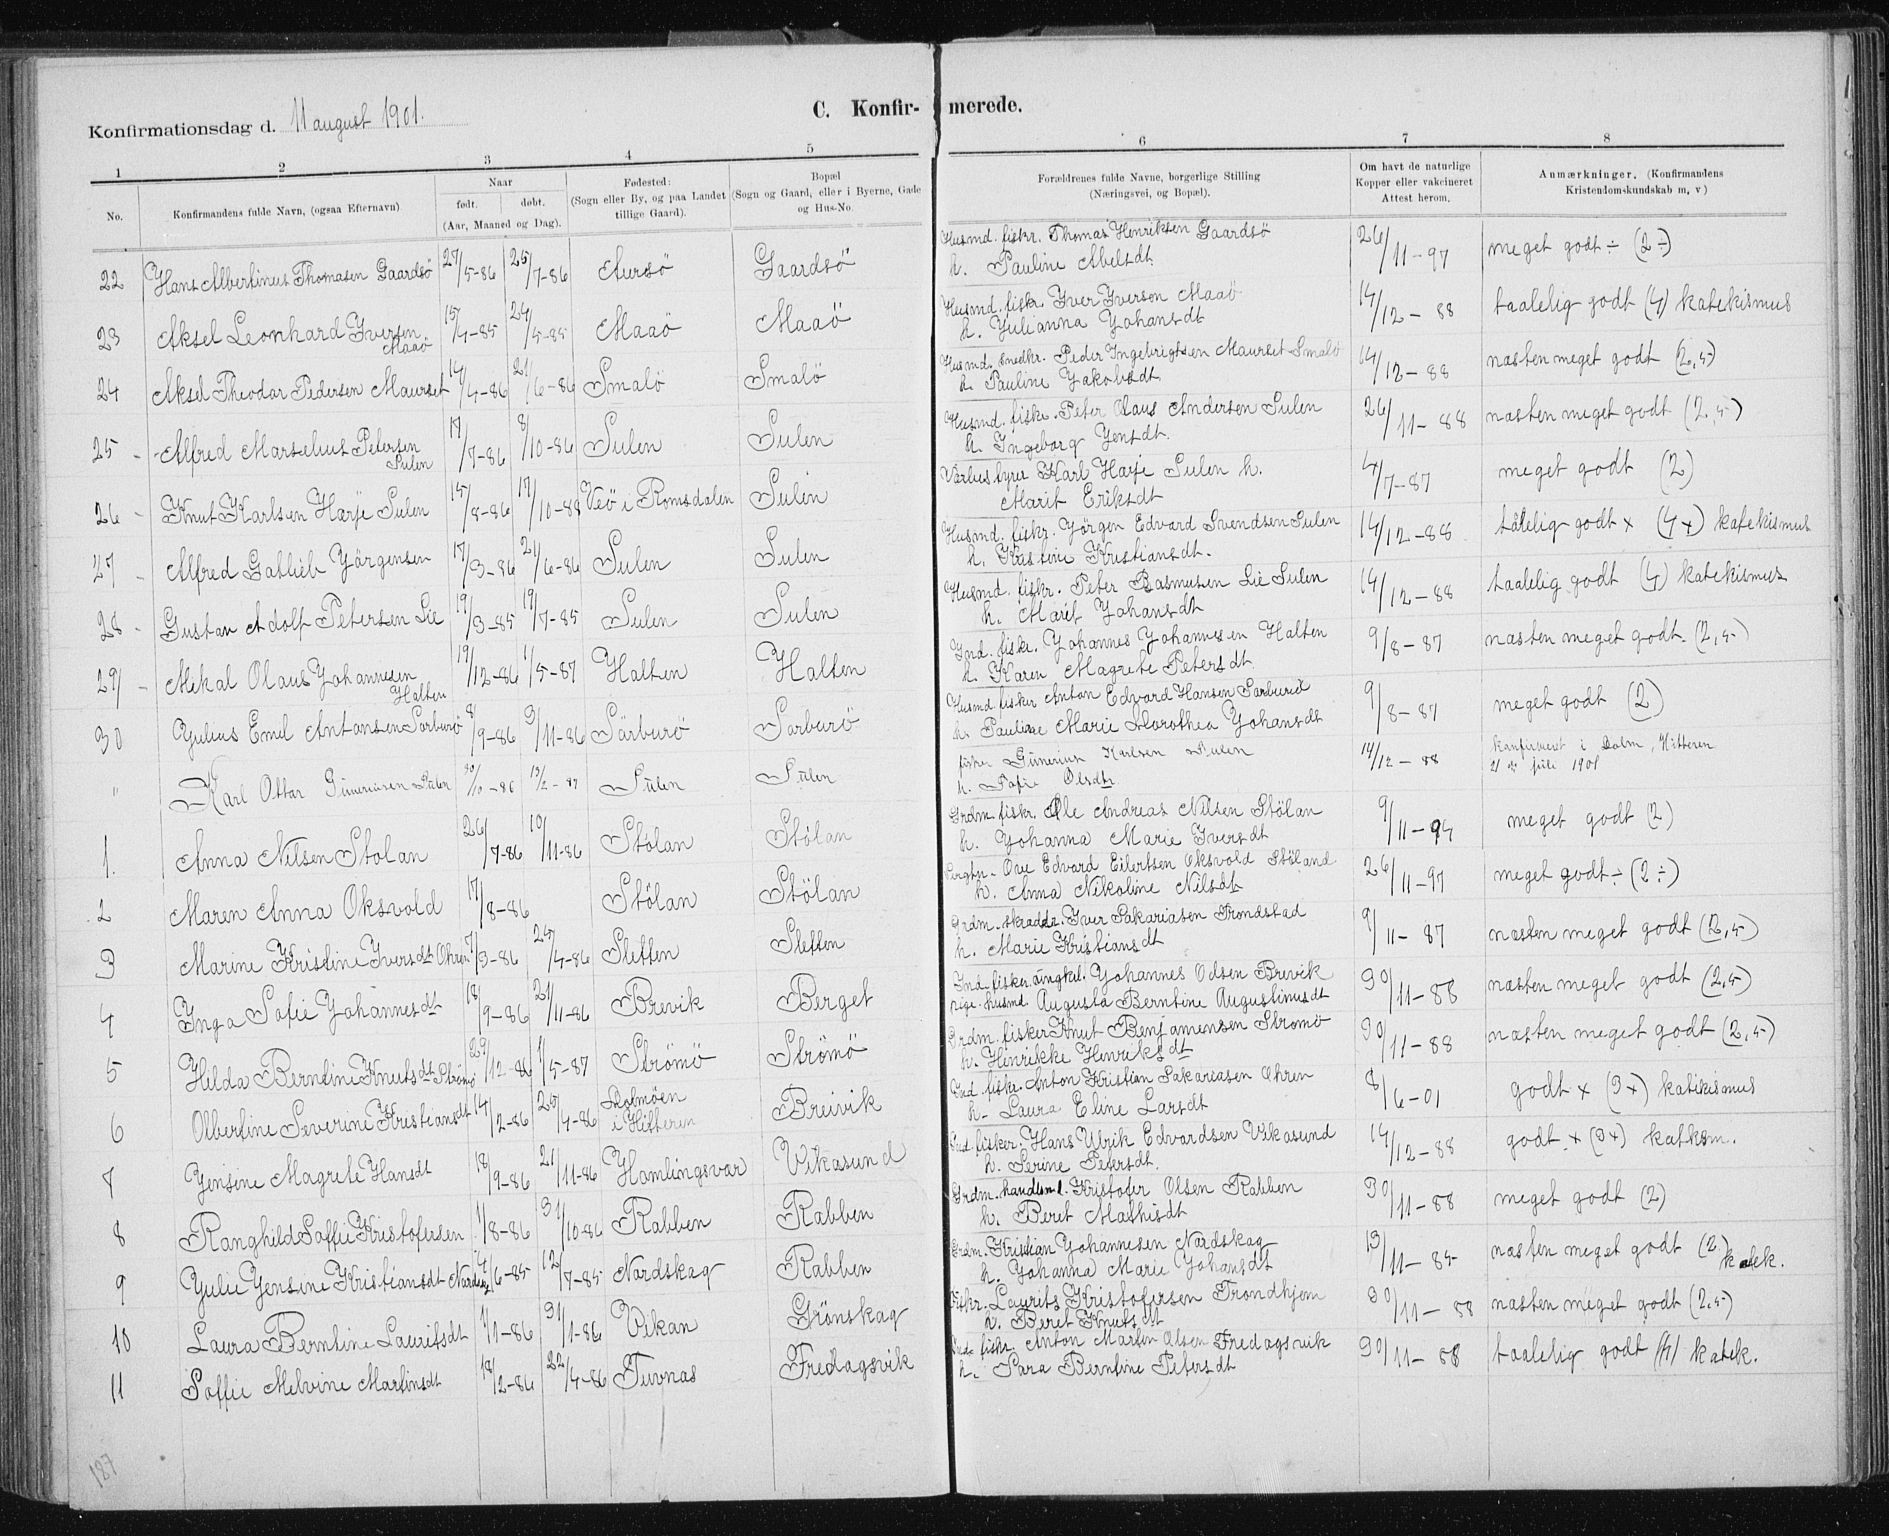 Konfirmationsdag d. 11 august 1901.
C. Konfir- merede.
1 2 3 4 5 6 7 8
No.
Konfirmandens fulde Navn, (ogsaa Efternavn).
Naar
født. døbt.
(Aar, Maaned og Dag).
Fødested:
(Sogn eller By, og paa Landet
tillige Gaard).
Bopæl
(Sogn og Gaard, eller i Byerne, Gade
og Hus-No.
Forældrenes fulde Navne, borgerlige Stilling
(Næringsvei, og Bopæl).
Om havt de naturlige
Kopper eller vakcineret
Attest herom.
Anmærkninger. (Konfirmandens
Kristendomskundskab m, v)
22 Hans Albertinus Thomasen Gaardsö 27/5-86 25/7-86 Aursö Gaardsö Husmd. fiskr. Thomas Henriksen Gaardsö 26/11-97 meget godt ÷ (2÷)
h. Pauline Abelsdt.
23 Aksel Leonhard Yversen 15/4-85 24/5-85 Maaö Maaö Husmd. fiskr. Yver Yversen Maaö 14/12-88 taalelig godt (4) katekismus
Maaö h. Yulianna Yohansdt
24 Aksel Theodar Pedersen Maurset 14/4-86 21/6-86 Smalö Smalö Husmd. snedkr. Peder Ingebrigtsen Maurset Smalö 14/12-88 næsten meget godt (2,5)
h. Pauline Yakobsdt
25 - Alfred Marselius Petersen 17/7-86 8/10-86 Sulen Sulen Husmd. fiskr. Peter Olaus Andersen Sulen 26/11-88 næsten meget godt (2,5)
Sulen h. Ingeborg Yensdt.
26 - Knut Karlsen Harje Sulen 15/8-86 17/10-88 Veö i Romsdalen Sulen Karl Harje Sulen h. 4/7-87 meget godt (2)
Marit Eriksdt
27 - Alfred Gatlieb Yörgensen 17/3-86 21/6-86 Sulen Sulen Husmd. fiskr. Yörgen Edvard Svendsen Sulen 14/12-88 tålelig godt x (4x) katekismus
h. Kristine Kristiansdt.
28 - Gustav Adolf Petersen Lie 19/3-85 19/7-85 Sulen Sulen Husmd. fiskr. Peter Rasmusen Lie Sulen 14/12-88 taalelig godt (4) katekismus
h. Marit Yohansdt
29 - Mekal Olaus Yohannesen 19/12-86 1/5-87 Halten Halten Ind. fiskr. Yohannes Yohannesen Halten 9/8-87 næsten meget godt. (2,5)
Halten h. Karen Magrete Petersdt
30 Yulius Emil Antonsen Sörburö 8/9-86 9/11-86 Sörburö Sörburö Husmd. fisker Anton Edvard Hansen Sørburö 9/8-87 meget godt (2)
h. Pauline Marie Dorothea Yohansdt
" Karl Ottar Guneriusen Sulen 30/10-86 13/2-87 Sulen Sulen fisker Gunerius Karlsen Sulen 14/12-88 Konfirmeret i Dolm, Hitteren
h. Sofie Olsdtr 21 de juli 1901
1. Anna Nilsen Stölan 26/7-86 19/11-86 Stölan Stölan Grdm. fiskr. Ole Andreas Nilsen Stölan 9/11-94 meget godt (2)
h. Yohanna Marie Yversdt
2 Maren Anna Oksvold 17/8-86 Stölan Stölan Ove Edvard Eilertsen Oksvold Stöland 26/11-97 meget godt ÷ (2÷)
h. Anna Nikoline Nilsdt
3 Marine Kristine Yversdt 7/3-86 24/4-86 Sletten Sletten Grdm. skaddr. Yver Sakariasen Trondstad 9/11-87 næsten meget godt (2,5)
h. Marie Kristiansdt
4 Inga Sofie Yohannesdt 18/9-86 21/11-86 Brevik Berget Ind. fisker ungkel. Yohannes Olsen Brevik 30/11-88 næsten meget godt (2,5)
pige. husmd. Augusta Berntine Augustinusdt
5 Hilda Berntine Knutsdt Strömö 29/12-86 1/5-87 Strömö Strömö Grdm. fisker Knut Benjamensen Strömö 30/11-88 næsten meget godt (2,5)
h. Henrikke Henriksdt
6 Olbertine Severine Kristiansdt 14/2-86 25/4-86 Dolmöen Breivik Ind. fiskr. Anton Kristian Sakariasen Ohren 8/6-01 godt x (3x) katikismus
i Hitteren h. Laura Eline Larsdt
7 Yensine Magrete Hansdt 18/9-86 21/11-86 Hamlingsvær Vikasund Ind. fisker. Hans Ulrik Edvardsen Vikasund 14/12-88 godt x (3x) katksm.
h. Serine Petersdt.
8 Ranghild Soffie Kristofersen 1/8-86 31/10-86 Rabben Rabben Grdm. handlm. Kristofer Olsen Rabben 30/11-88 meget godt (2)
h. Beret Mathisdt
9 Yulie Yensine Kristiansdt Nordskag 4/6-85 12/7-85 Nordskag Rabben Grdm. Kristian Yohannesen Nordskag 13/11-85 næsten meget godt (2
h. Yohanna Marie Yohansdt katek.
10 Laura Berntine Lauritsdt 1/1-86 31/1-86 Vikan Grönskag Fiskr. Laurits Kristofersen Trondhjem 30/11-88 næsten meget godt (2.5)
h. Beret Knutsdt
11 Soffie Melvine Martinsdt 18/2-86 22/4-86 Tuvnas Fredagsvik Ind. fiskr. Anton Martin Olsen Fredagsvik 30/11-88 taalelig godt (4) katek.
h. Sara Berntine Petersdt
187